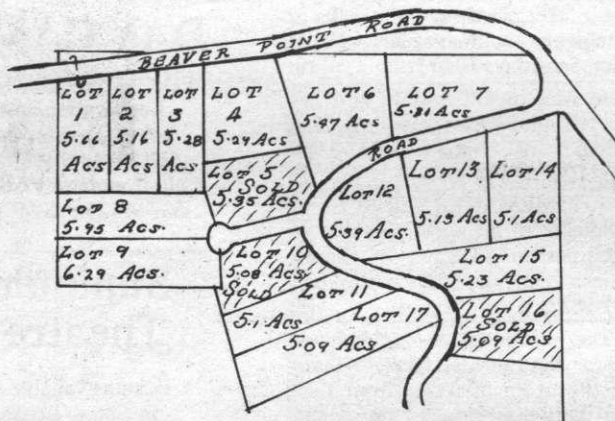 BEAVER POINT ROAD
LOT
1
5.66
Acs
LOT
2
5.16
Acs
LOT
3
5.28
Acs
LOT
4
5.29 Acs
LOT 6
5.47 Acs
LOT 7
5.21 Acs
ROAD
LOT 5
SOLD
5.35 Acs.
LOT 8
5.95 Acs.
LOT 9
6.29 Acs.
LOT 10
5.08 Acs
SOLD
LOT 11
5.1 Acs
LOT 17
5.09 Acs
LOT 12
5.39 Acs.
LOT 13
5.13 Acs
LOT 14
5.1 Acs
LOT 15
5.23 Acs.
LOT 16
SOLD
5.09 Acs